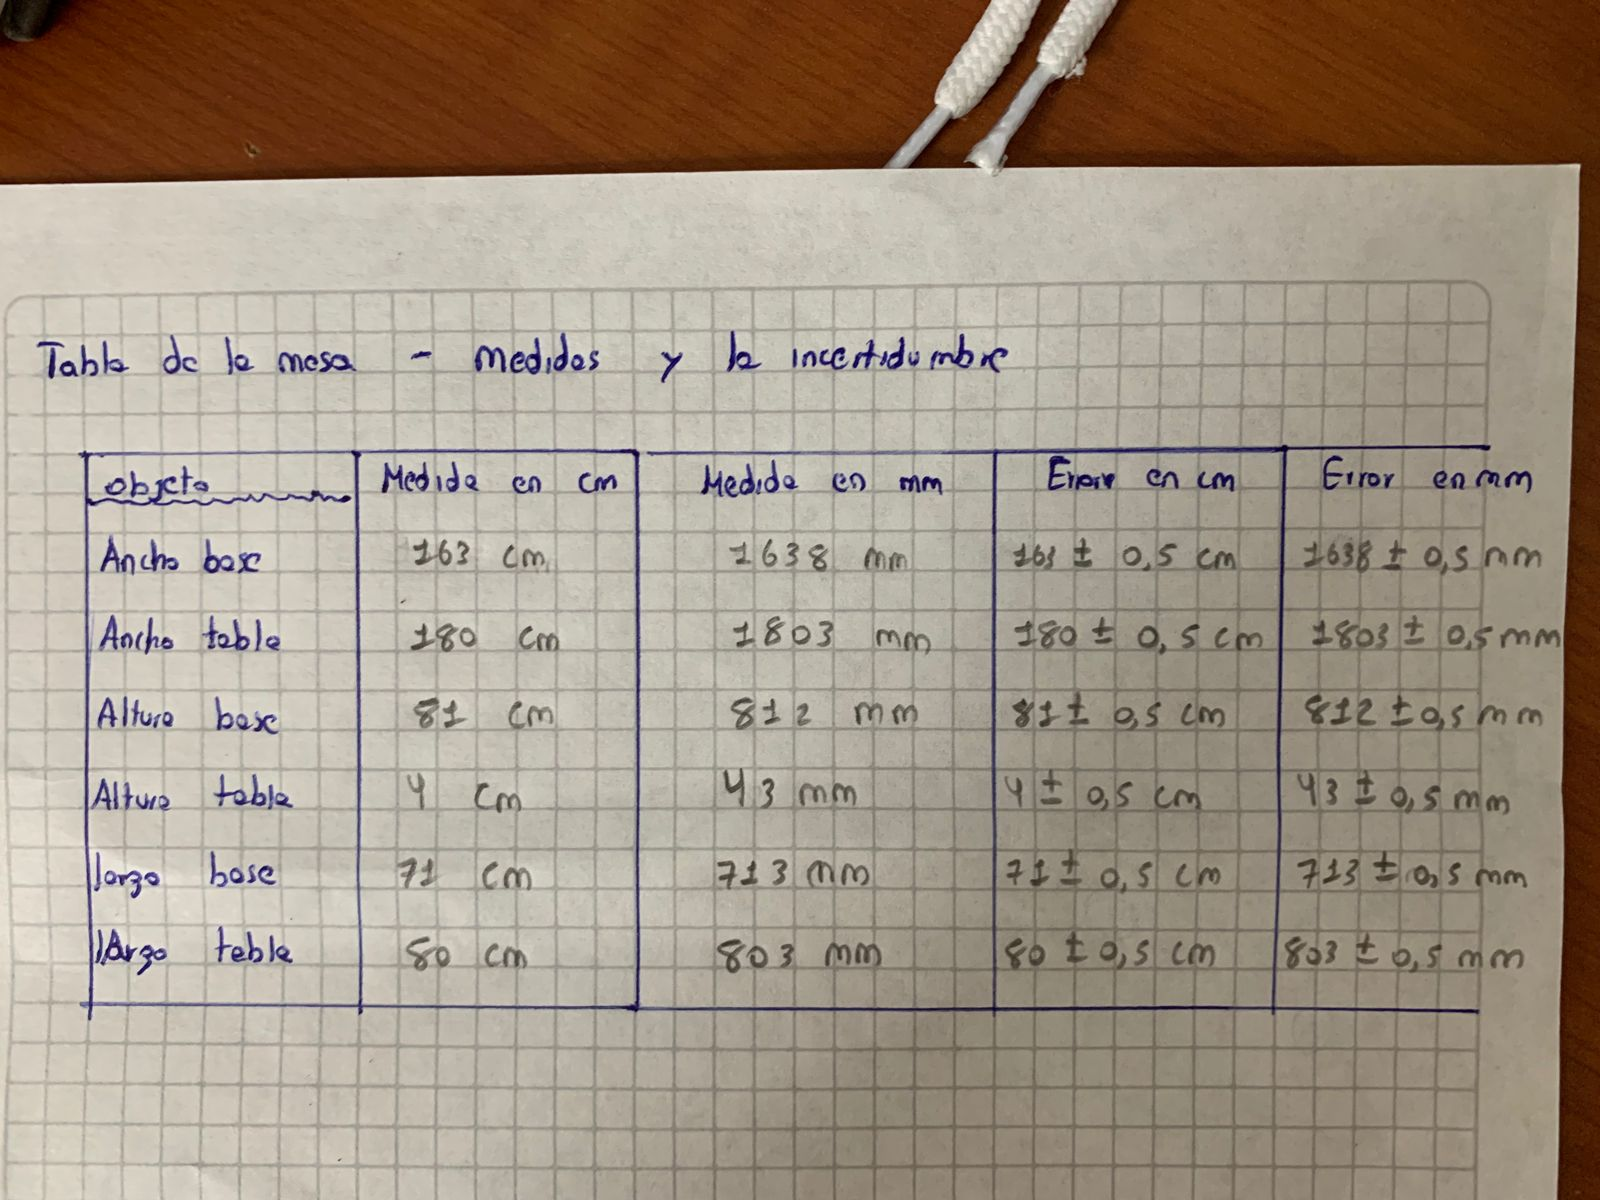 Tabla de la mesa - medidas y la incertidumbre
objeto Medida en cm Medida en mm Error en cm Error en mm
Ancho base 163 cm 1638 mm 163 ± 0,5 cm 1638 ± 0,5 mm
Ancho tabla 180 cm 1803 mm 180 ± 0,5 cm 1803 ± 0,5 mm
Altura base 81 cm 812 mm 81 ± 0,5 cm 812 ± 0,5 mm
Altura tabla 4 cm 43 mm 4 ± 0,5 cm 43 ± 0,5 mm
largo base 71 cm 713 mm 71 ± 0,5 cm 713 ± 0,5 mm
largo tabla 80 cm 803 mm 80 ± 0,5 cm 803 ± 0,5 mm